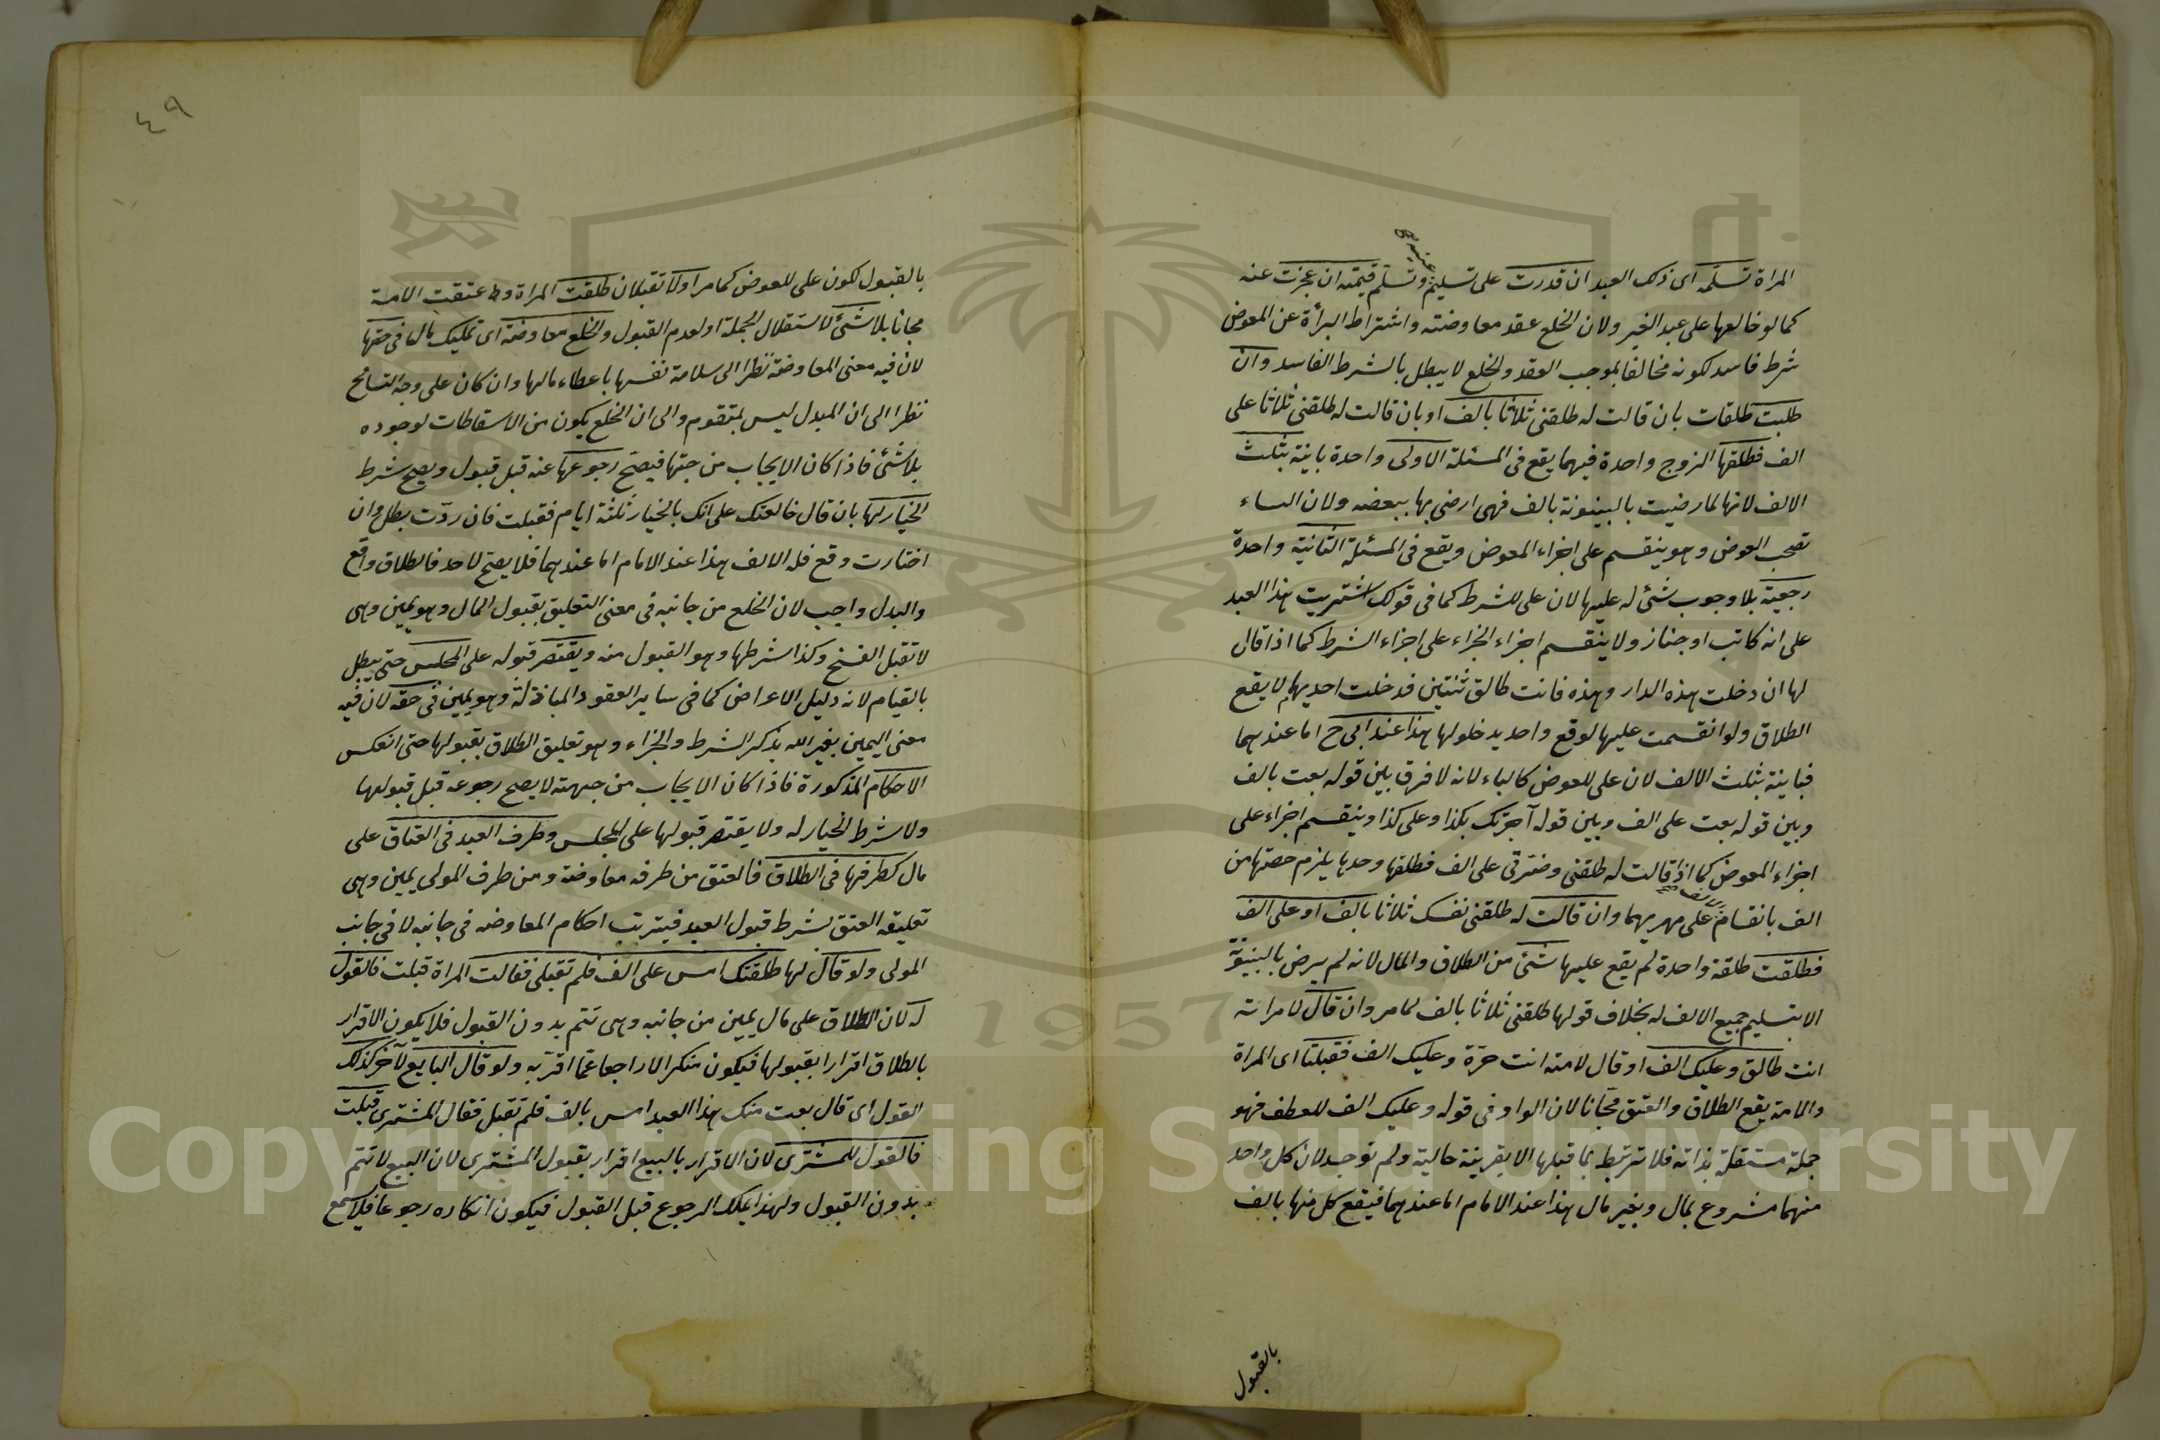 المراة تسلمه اى ذلك العبد ان قدرت على تسليمه وتسلم قيمته ان عجزت عنه
كما لو خالعها على عبد الغير ولان الخلع عقد معاوضته واشتراط البرأة عن العوض
شرط فاسد لكونه مخالفا بموجب العقد والخلع لا يبطل بالشرط الفاسد وان
طلبت طلقات بان قالت له طلقنى ثلاثا بالف او بان قالت له طلقنى ثلاثا على
الف فطلقها الزوج واحدة فيهما يقع فى المسئلة الاولى واحدة باينة بثلث
الالف لانها لما رضيت بالبينونة بالف فهى ارضى بها ببعضه ولان الباء
تصحب العوض وهو ينقسم على اجزاء المعوض ويقع فى المسئلة الثانية واحدة
رجعية بلا وجوب شئ له عليها لان على للشرط كما فى قولك اشتريت هذا العبد
على انه كاتب او خباز ولا ينقسم اجزاء الجزاء على اجزاء الشرط كما اذا قال
لها ان دخلت هذه الدار وهذه فانت طالق ثنتين فدخلت احديهما لا يقع
الطلاق ولو انقسمت عليها لوقع واحد بدخولها هذا عند ابى ح اما عندهما
فباينة بثلث الالف لان على للعوض كالباء لانه لا فرق بين قوله بعت بالف
وبين قوله بعت على الف وبين قوله آجرتك بكذا وعلى كذا وينقسم اجزاء على
اجزاء المعوض كما اذا قالت له طلقنى وضرتى على الف فطلقها وحدها يلزم حصتها من
الف بانقسام الالف على مهريهما وان قالت له طلقنى نفسك ثلاثا بالف او على الف
فطلقت طلقة واحدة لم يقع عليها شئ من الطلاق والمال لانه لم يرض بالبينونة
الا بتسليم جميع الالف له بخلاف قولها طلقنى ثلاثا بالف لما مر وان قال لامراته
انت طالق وعليك الف او قال لامته انت حرة وعليك الف فقبلتا اى المراة
والامة يقع الطلاق والعتق مجانا لان الواو فى قوله وعليك الف للعطف فهو
جملة مستقلة بذاته فلا ترتبط بما قبلها الا بقرينة حالية ولم توجد لان كل واحد
منهما مشروع بمال وبغير مال هذا عند الامام اما عندهما فيقع كل منها بالف
بالقبول
٤٩
بالقبول لكون على للعوض كما مر او لا تقبلان طلقت المراة وعتقت الامة
مجانا بلا شئ لاستقلال الجملة او لعدم القبول والخلع معاوضة اى تمليك بالمال فى حقها
لان فيه معنى المعاوضة نظرا الى سلامة نفسها باعطاء مالها وان كان على وجه التسامح
نظرا الى ان المبدل ليس بمتقوم والى ان الخلع يكون من الاسقاطات لوجوده
بلا شئ فاذا كان الايجاب من جهتها فيصح رجوعها عنه قبل قبول ويصح شرط
الخيار لها بان قال خالعتك على انك بالخيار ثلثة ايام فقبلت فان ردت بطل وان
اختارت وقع فله الالف هذا عند الامام اما عندهما فلا يصح لاحد فالطلاق واقع
والبدل واجب لان الخلع من جانبه فى معنى التعليق بقبول المال وهو يمين وهى
لا تقبل الفسخ وكذا شرطها وهو القبول منه ويقتصر قبوله على المجلس حتى يبطل
بالقيام لانه دليل الاعراض كما فى ساير العقود المبادلة وهو يمين فى حقه لان فيه
معنى اليمين بغير الله بذكر الشرط والجزاء وهو تعليق الطلاق بقبولها حتى انعكس
الاحكام المذكورة فاذا كان الايجاب من جهته لا يصح رجوعه قبل قبولها
ولا شرط الخيار له ولا يقتصر قبولها على المجلس وطرف العبد فى العتاق على
مال كطرفها فى الطلاق فالعتق من طرفه معاوضة ومن طرف المولى يمين وهى
تعليقه العتق بشرط قبول العبد فيترتب احكام المعاوضه فى جانبه لا فى جانب
المولى ولو قال لها طلقتك امس على الف فلم تقبلى فقالت المراة قبلت فالقول
له لان الطلاق على مال يمين من جانبه وهى تتم بدون القبول فلا يكون الاقرار
بالطلاق اقرارا بقبولها فيكون منكرا لا راجعا عما اقر به ولو قال البايع لآخر كذلك
القول اى قال بعت منك هذا العبد امس بالف فلم تقبل فقال المشترى قبلت
فالقول للمشترى لان الاقرار بالبيع اقرار بقبول المشترى لان البيع لا تتم
بدون القبول ولهذا يملك الرجوع قبل القبول فيكون انكاره رجوعا فلا يسمع
1957
Copyright © King Saud University